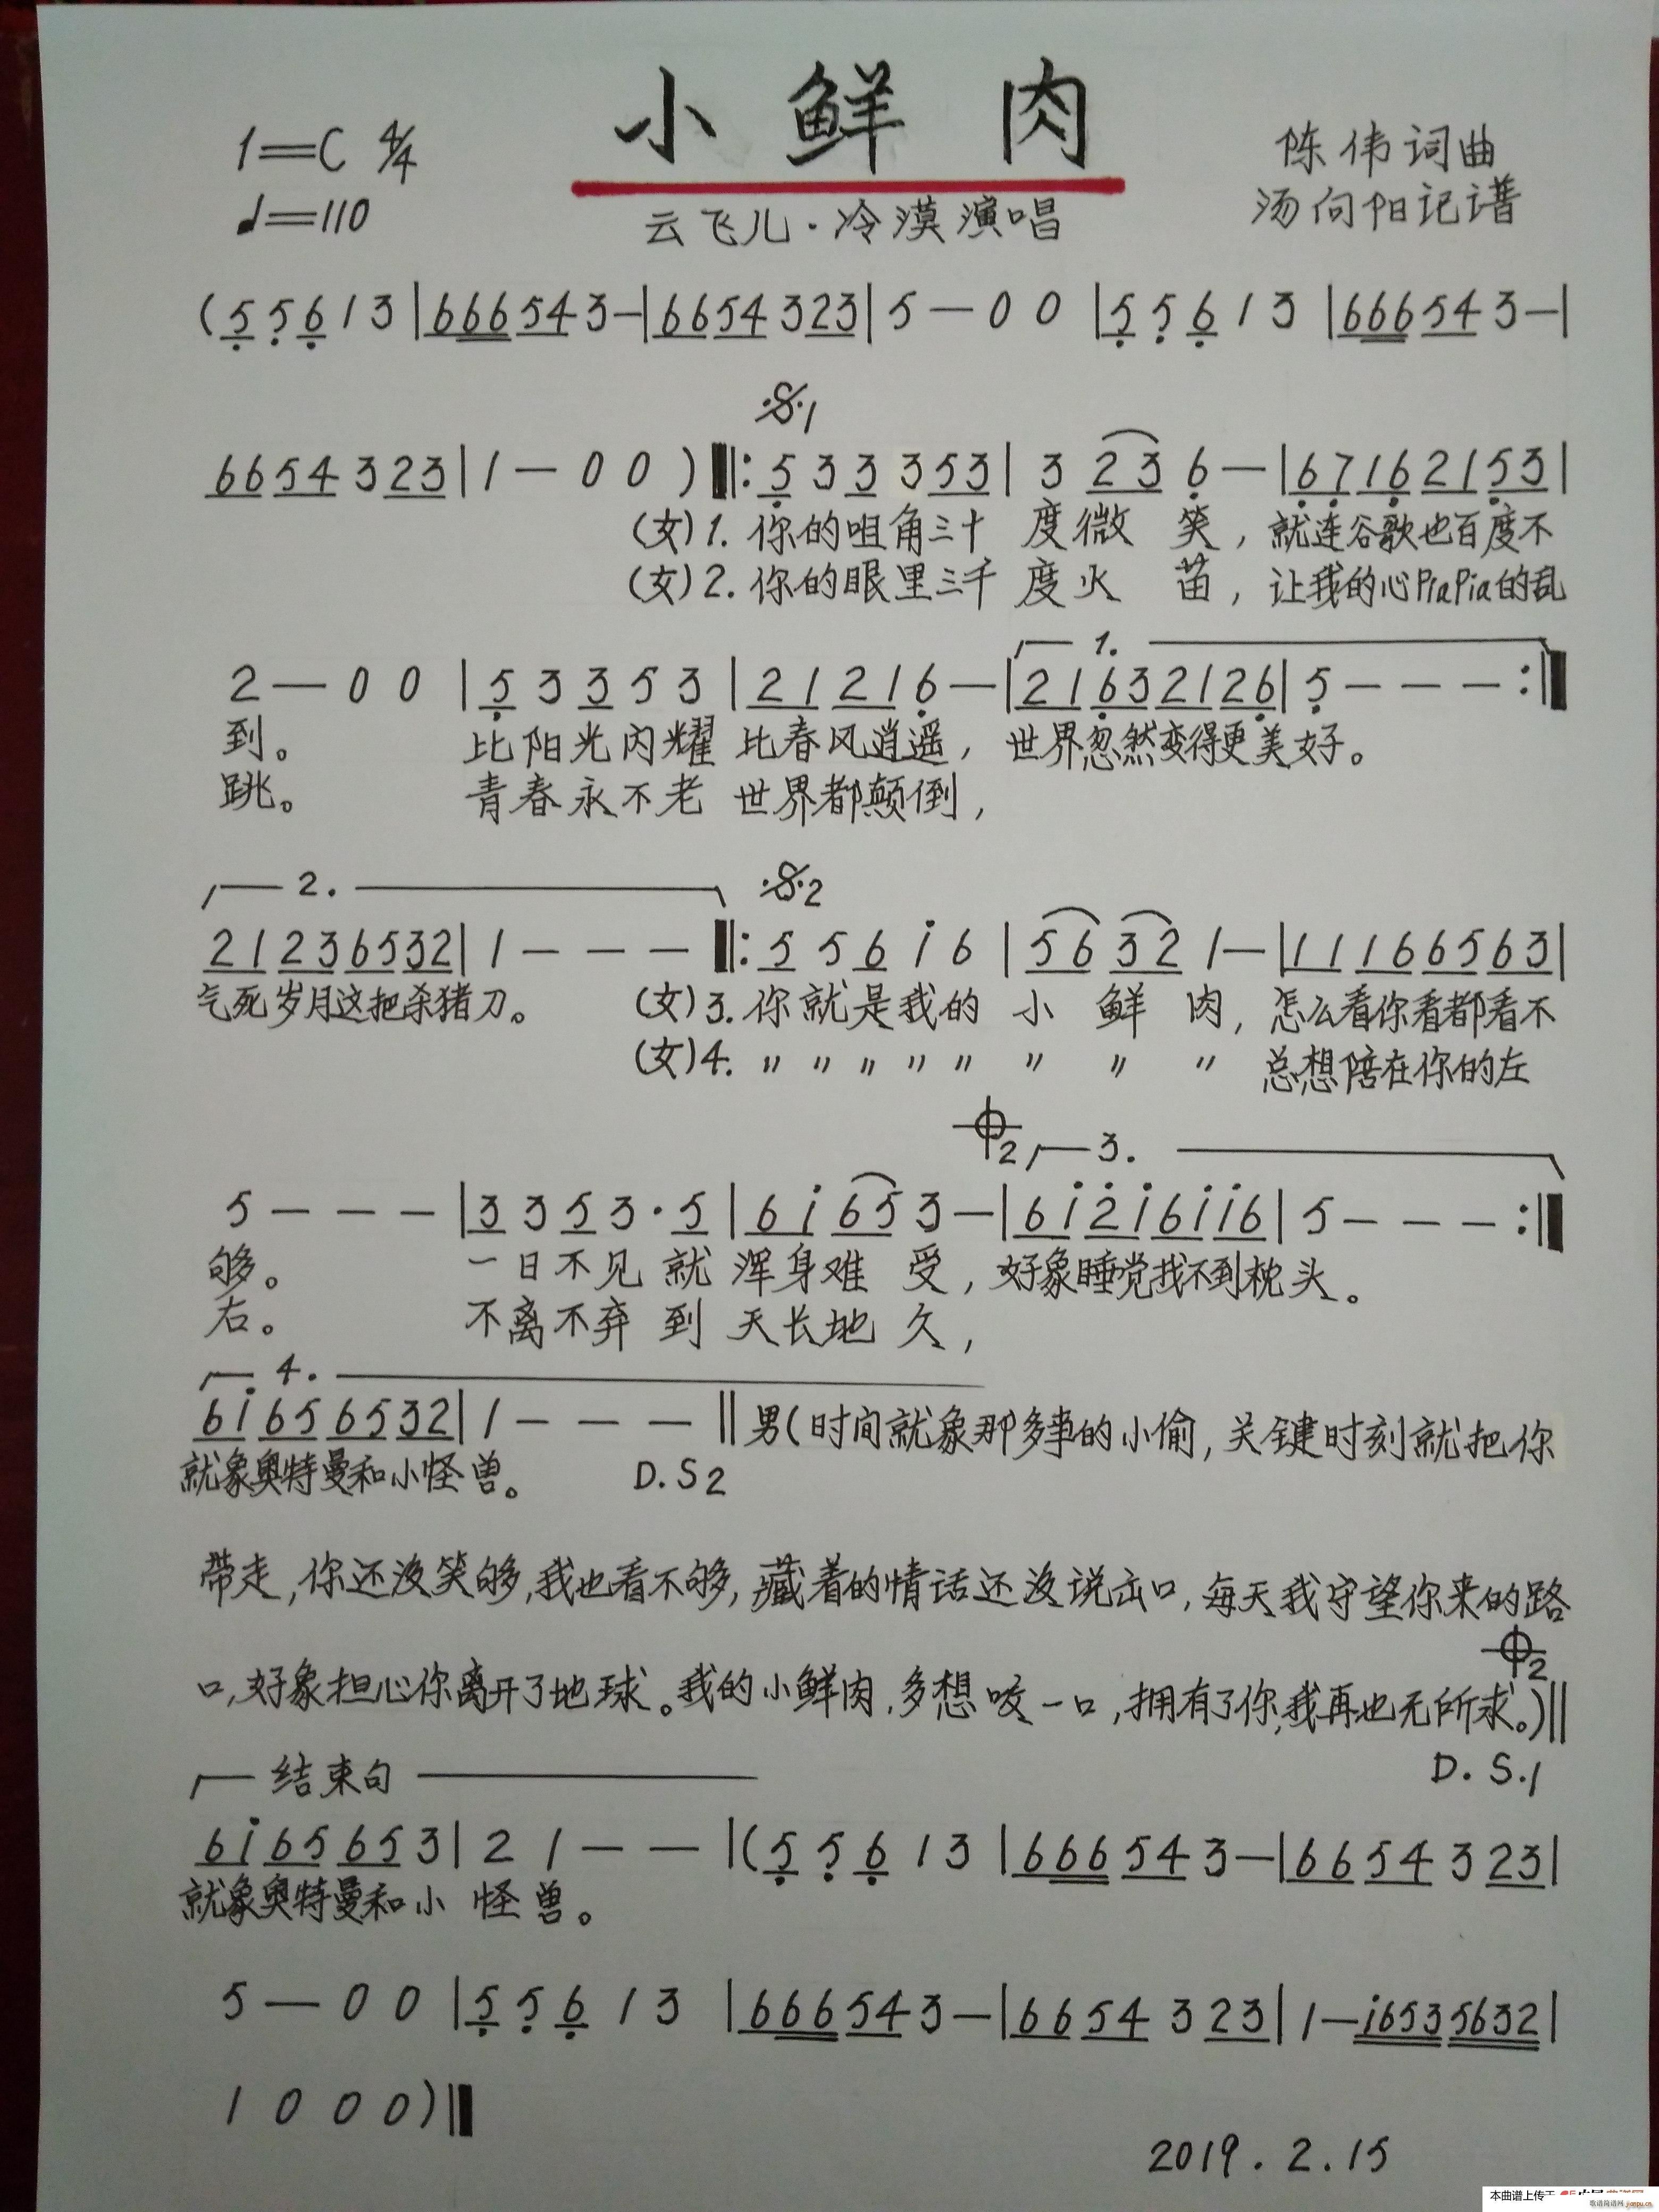 小鲜肉
1=C 4/4
陈伟词曲
♩=110
云飞儿·冷漠演唱
汤向阳记谱
(5 5 6 1 3 | 6 6 6 5 4 3 — | 6 6 5 4 3 2 3 | 5 — 0 0 | 5 5 6 1 3 | 6 6 6 5 4 3 — |
𝄋1
6 6 5 4 3 2 3 | 1 — 0 0 ) ‖: 5 3 3 3 5 3 | 3 2 3 6 — | 6 7 1 6 2 1 5 3 |
(女)1. 你的咀角三十 度微 笑, 就连谷歌也百度不
(女)2. 你的眼里三千 度火 苗, 让我的心PiaPia的乱
1.
2 — 0 0 | 5 3 3 5 3 | 2 1 2 1 6 — | 2 1 6 3 2 1 2 6 | 5 — — — :‖
到。 比阳光闪耀 比春风逍遥, 世界忽然变得更美好。
跳。 青春永不老 世界都颠倒,
2. 𝄋2
2 1 2 3 6 5 3 2 | 1 — — — ‖: 5 5 6 i 6 | 5 6 3 2 1 — | 1 1 1 6 6 5 6 3 |
气死岁月这把杀猪刀。 (女)3. 你就是我的 小 鲜 肉, 怎么看你看都看不
(女)4. 〃 〃 〃 〃 〃 〃 〃 〃 总想陪在你的左
𝄌2 3.
5 — — — | 3 3 5 3 · 5 | 6 i 6 5 3 — | 6 i 2 i 6 i i 6 | 5 — — — :‖
够。 一日不见 就 浑身难 受, 好象睡觉找不到枕头。
右。 不离不弃 到 天长地 久,
4.
6 i 6 5 6 5 3 2 | 1 — — — ‖ 男(时间就象那多事的小偷, 关键时刻就把你
就象奥特曼和小怪兽。 D.S2
带走, 你还没笑够, 我也看不够, 藏着的情话还没说出口, 每天我守望你来的路
𝄌2
口, 好象担心你离开了地球。我的小鲜肉, 多想咬一口, 拥有了你, 我再也无所求。)‖
结束句 D. S.1
6 i 6 5 6 5 3 | 2 1 — — | (5 5 6 1 3 | 6 6 6 5 4 3 — | 6 6 5 4 3 2 3 |
就象奥特曼和小 怪 兽。
5 — 0 0 | 5 5 6 1 3 | 6 6 6 5 4 3 — | 6 6 5 4 3 2 3 | 1 — i 6 5 3 5 6 3 2 |
1 0 0 0 ) ‖
2019.2.15
本曲谱上传于